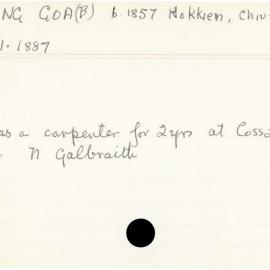 NG GOA(B) b. 1857 Hokkien, Chi
1. 1887
as a carpenter for 2yrs at Coss
N Galbraith